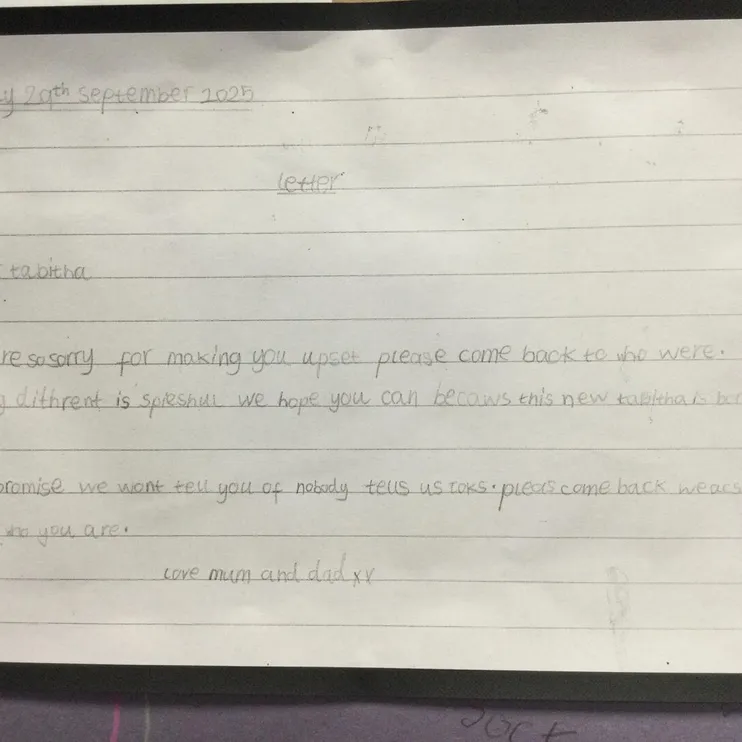 y 29th september 2025
letter
tabitha
re so sorry for making you upset please come back to who were.
g dithrent is spieshul we hope you can becaws this new tabitha is
promise we wont tell you of nobody tells us joks. pleas come back we
who you are.
love mum and dad xx